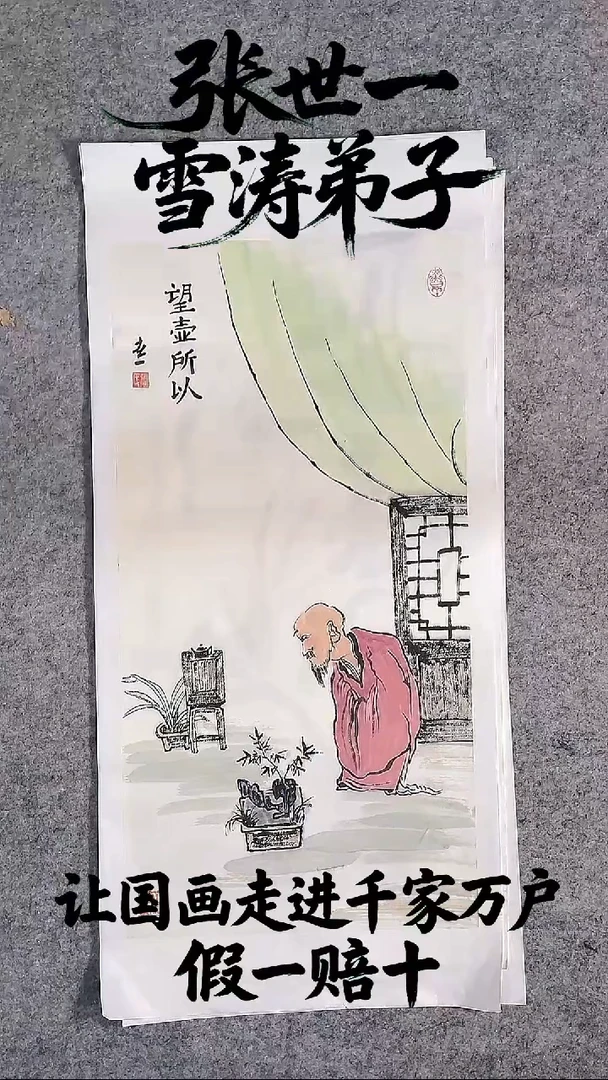 张世一
雪涛弟子
望壶所以
让国画走进千家万户
假一赔十